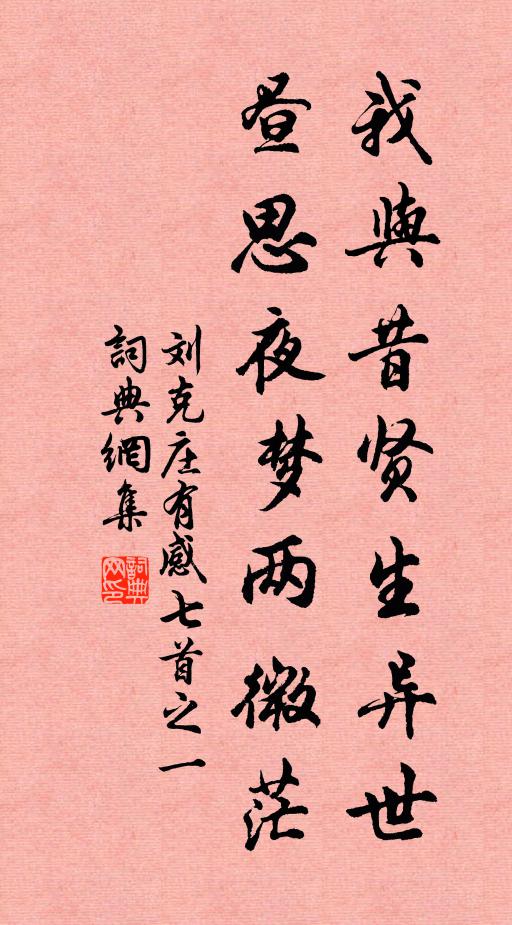 我與昔贤生异世
昼思夜梦两微茫
刘克庄有感七首之一
詞典網集
詞典网印